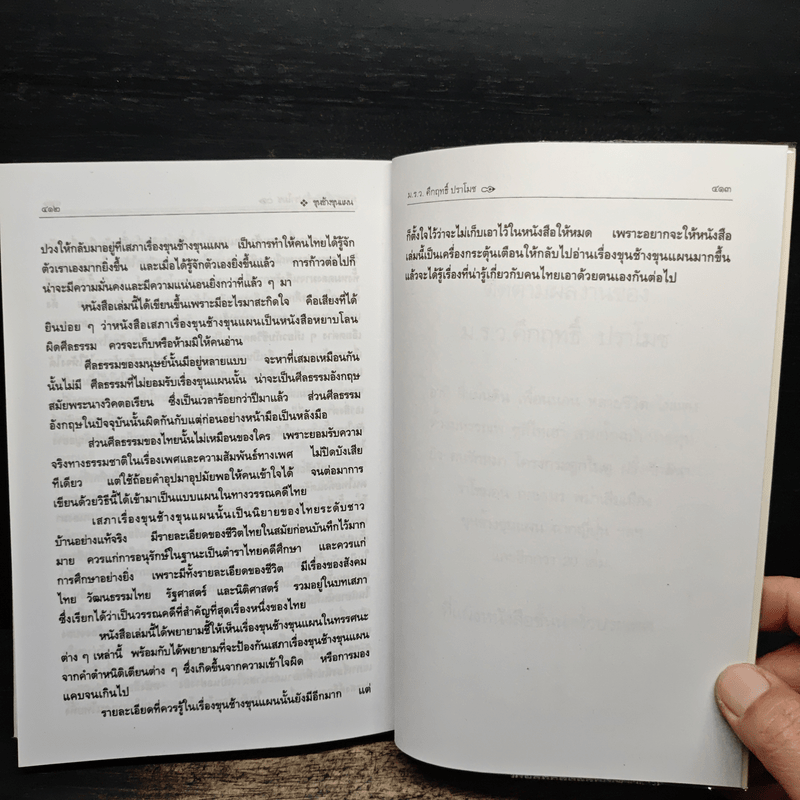 ๔๑๒ ❖ ขุนช้างขุนแผน
ปวงให้กลับมาอยู่ที่เสภาเรื่องขุนช้างขุนแผน เป็นการทำให้คนไทยได้รู้จัก
ตัวเราเองมากยิ่งขึ้น และเมื่อได้รู้จักตัวเองยิ่งขึ้นแล้ว การก้าวต่อไปก็
น่าจะมีความมั่นคงและมีความแน่นอนยิ่งกว่าที่แล้ว ๆ มา
หนังสือเล่มนี้ได้เขียนขึ้นเพราะมีอะไรมาสะกิดใจ คือเสียงที่ได้
ยินบ่อย ๆ ว่าหนังสือเสภาเรื่องขุนช้างขุนแผนเป็นหนังสือหยาบโลน
ผิดศีลธรรม ควรจะเก็บหรือห้ามมิให้คนอ่าน
ศีลธรรมของมนุษย์นั้นมีอยู่หลายแบบ จะหาที่เสมอเหมือนกัน
นั้นไม่มี ศีลธรรมที่ไม่ยอมรับเรื่องขุนแผนนั้น น่าจะเป็นศีลธรรมอังกฤษ
สมัยพระนางวิคตอเรียน ซึ่งเป็นเวลาร้อยกว่าปีมาแล้ว ส่วนศีลธรรม
อังกฤษในปัจจุบันนั้นผิดกันกับแต่ก่อนอย่างหน้ามือเป็นหลังมือ
ส่วนศีลธรรมของไทยนั้นไม่เหมือนของใคร เพราะยอมรับความ
จริงทางธรรมชาติในเรื่องเพศและความสัมพันธ์ทางเพศ ไม่ปิดบังเสีย
ทีเดียว แต่ใช้ถ้อยคำอุปมาอุปมัยพอให้คนเข้าใจได้ จนต่อมาการ
เขียนด้วยวิธีนี้ได้เข้ามาเป็นแบบแผนในทางวรรณคดีไทย
เสภาเรื่องขุนช้างขุนแผนนั้นเป็นนิยายของไทยระดับชาว
บ้านอย่างแท้จริง มีรายละเอียดของชีวิตไทยในสมัยก่อนบันทึกไว้มาก
มาย ควรแก่การอนุรักษ์ในฐานะเป็นตำราไทยคดีศึกษา และควรแก่
การศึกษาอย่างยิ่ง เพราะมีทั้งรายละเอียดของชีวิต มีเรื่องของสังคม
ไทย วัฒนธรรมไทย รัฐศาสตร์ และนิติศาสตร์ รวมอยู่ในบทเสภา
ซึ่งเรียกได้ว่าเป็นวรรณคดีที่สำคัญที่สุดเรื่องหนึ่งของไทย
หนังสือเล่มนี้ได้พยายามชี้ให้เห็นเรื่องขุนช้างขุนแผนในทรรศนะ
ต่าง ๆ เหล่านี้ พร้อมกับได้พยายามที่จะป้องกันเสภาเรื่องขุนช้างขุนแผน
จากคำตำหนิติเตียนต่าง ๆ ซึ่งเกิดขึ้นจากความเข้าใจผิด หรือการมอง
แคบจนเกินไป
รายละเอียดที่ควรรู้ในเรื่องขุนช้างขุนแผนนั้นยังมีอีกมาก แต่
ม.ร.ว. คึกฤทธิ์ ปราโมช ๔๑๓
ก็ตั้งใจไว้ว่าจะไม่เก็บเอาไว้ในหนังสือให้หมด เพราะอยากจะให้หนังสือ
เล่มนี้เป็นเครื่องกระตุ้นเตือนให้กลับไปอ่านเรื่องขุนช้างขุนแผนมากขึ้น
แล้วจะได้รู้เรื่องที่น่ารู้เกี่ยวกับคนไทยเอาด้วยตนเองกันต่อไป